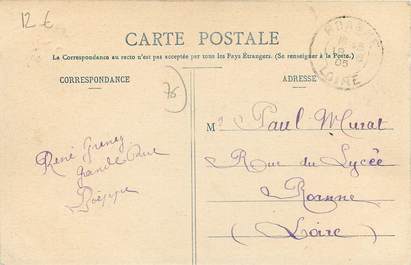 12 €
CARTE POSTALE
La Correspondance au recto n'est pas acceptée par tous les Pays Étrangers. (Se renseigner à la Poste.)
CORRESPONDANCE
ADRESSE
ROANNE
18
05
LOIRE
76
René
Grande Rue
Dieppe
M. Paul Murat
Rue du Lycée
Roanne
(Loire)